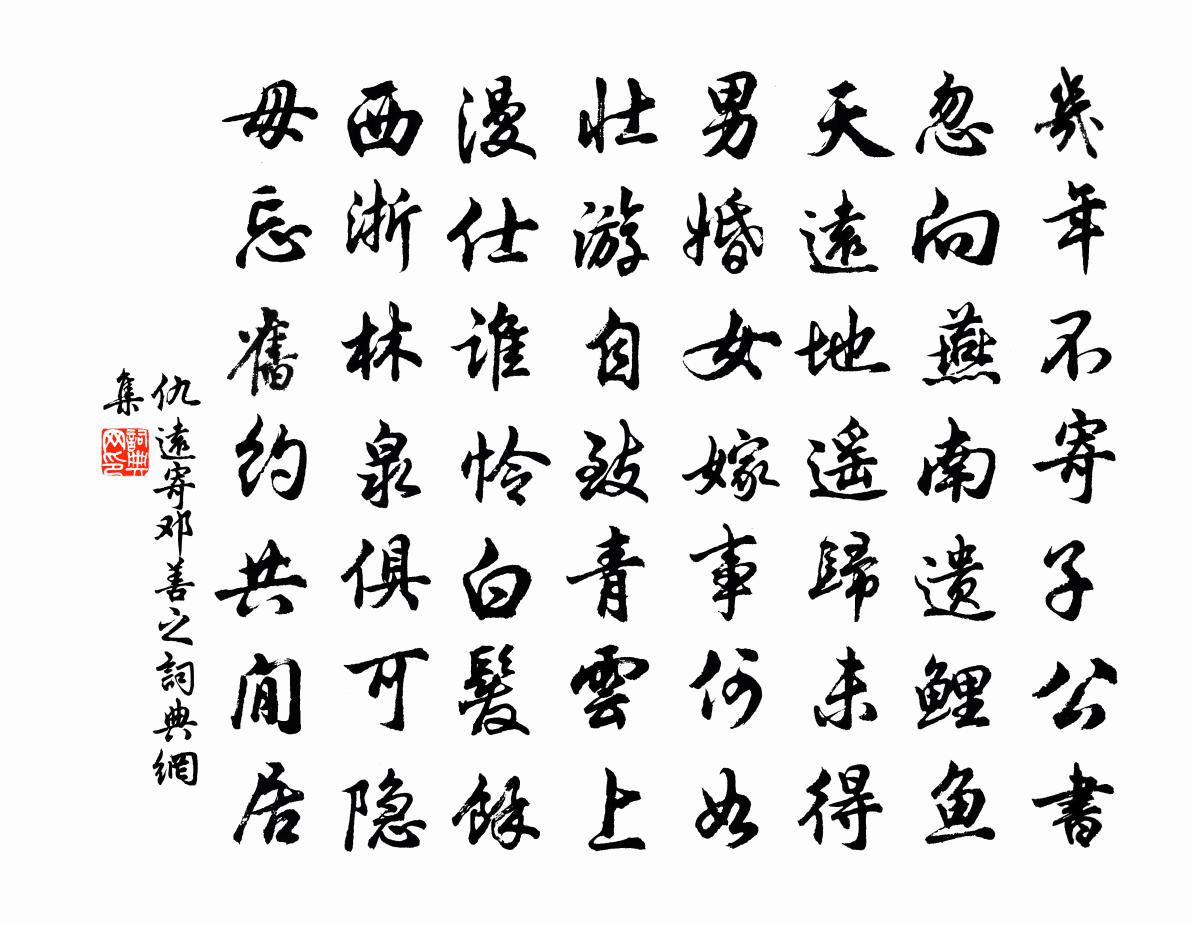 幾年不寄子公書
忽向燕南遗鯉魚
天遠地遥歸未得
男婚女嫁事何如
壮游自致青雲上
漫仕谁怜白髮餘
西浙林泉俱可隐
毋忘舊约共閒居
仇遠寄邓善之詞典網
集
詞典網印